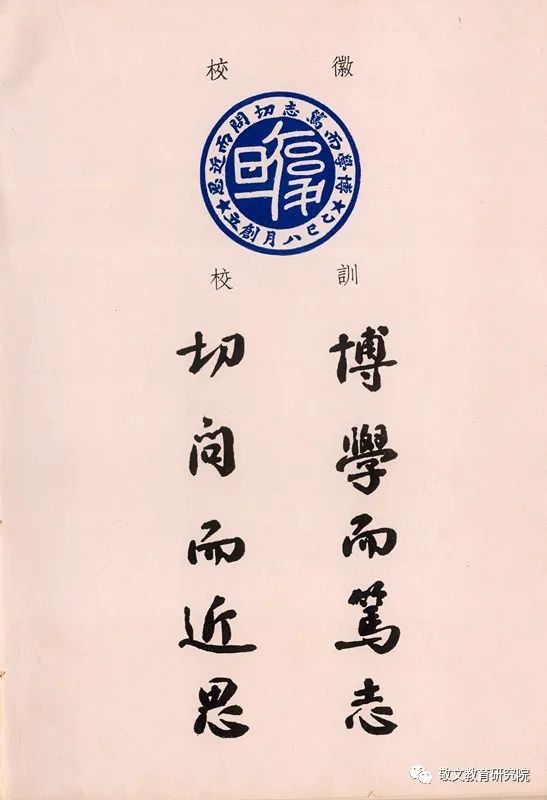 校徽
博學而篤志切問而近思
乙巳八月創立
復旦
校訓
博學而篤志
切問而近思
敬文教育研究院